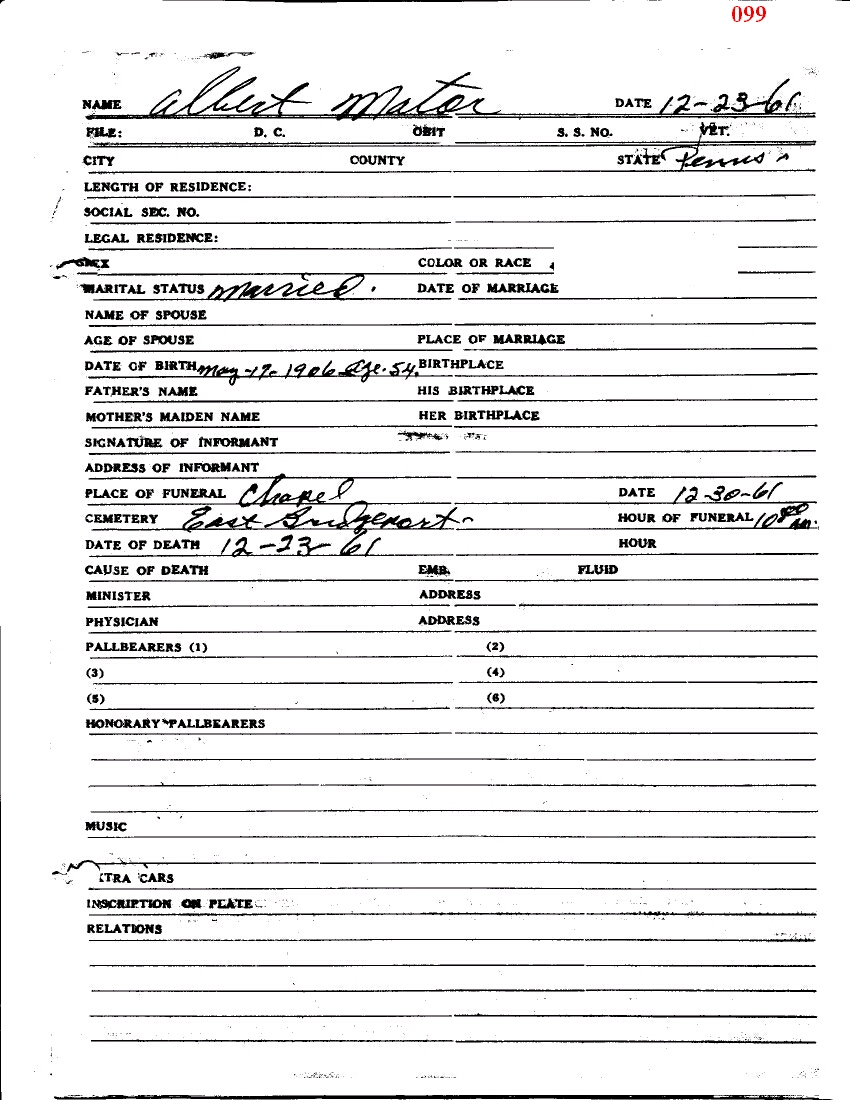 099
NAME Albert Mator DATE 12-23-61
FILE: D. C. OBIT S. S. NO. VET.
CITY COUNTY STATE Penns
LENGTH OF RESIDENCE:
SOCIAL SEC. NO.
LEGAL RESIDENCE:
SEX COLOR OR RACE
MARITAL STATUS Married. DATE OF MARRIAGE
NAME OF SPOUSE
AGE OF SPOUSE PLACE OF MARRIAGE
DATE OF BIRTH May-17-1906 Age.54. BIRTHPLACE
FATHER'S NAME HIS BIRTHPLACE
MOTHER'S MAIDEN NAME HER BIRTHPLACE
SIGNATURE OF INFORMANT
ADDRESS OF INFORMANT
PLACE OF FUNERAL Chapel DATE 12-30-61
CEMETERY East Bridgeport HOUR OF FUNERAL 10 00 AM.
DATE OF DEATH 12-23-61 HOUR
CAUSE OF DEATH EMB. FLUID
MINISTER ADDRESS
PHYSICIAN ADDRESS
PALLBEARERS (1) (2)
(3) (4)
(5) (6)
HONORARY PALLBEARERS
MUSIC
XTRA CARS
INSCRIPTION ON PLATE
RELATIONS